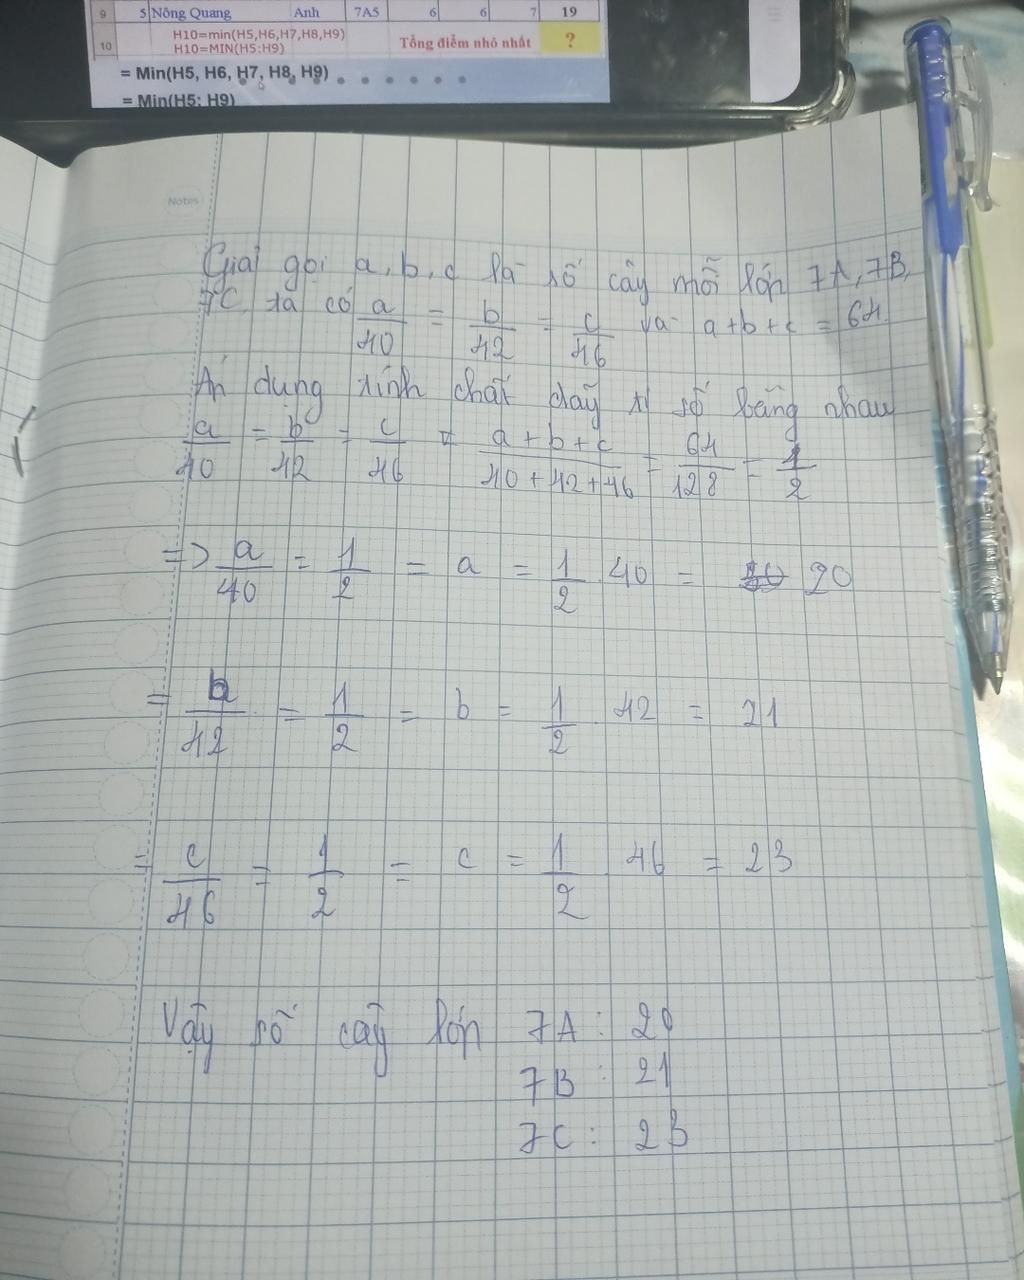 9 5 Nông Quang Anh 7A5 6 6 7 19
10 H10=min(H5,H6,H7,H8,H9) Tổng điểm nhỏ nhất ?
H10=MIN(H5:H9)
= Min(H5, H6, H7, H8, H9)
= Min(H5: H9)
Notes
Giải gọi a, b, c là số cây mỗi lớp 7A, 7B,
7C, ta có a/40 = b/42 = c/46 và a+b+c = 64.
Áp dụng tính chất dãy tỉ số bằng nhau
a/40 = b/42 = c/46 = a+b+c/40+42+46 = 64/128 = 1/2
=> a/40 = 1/2 = a = 1/2 . 40 = 20
= b/42 = 1/2 = b = 1/2 . 42 = 21
= c/46 = 1/2 = c = 1/2 . 46 = 23
Vậy số cây lớp 7A : 20
7B : 21
7C : 23